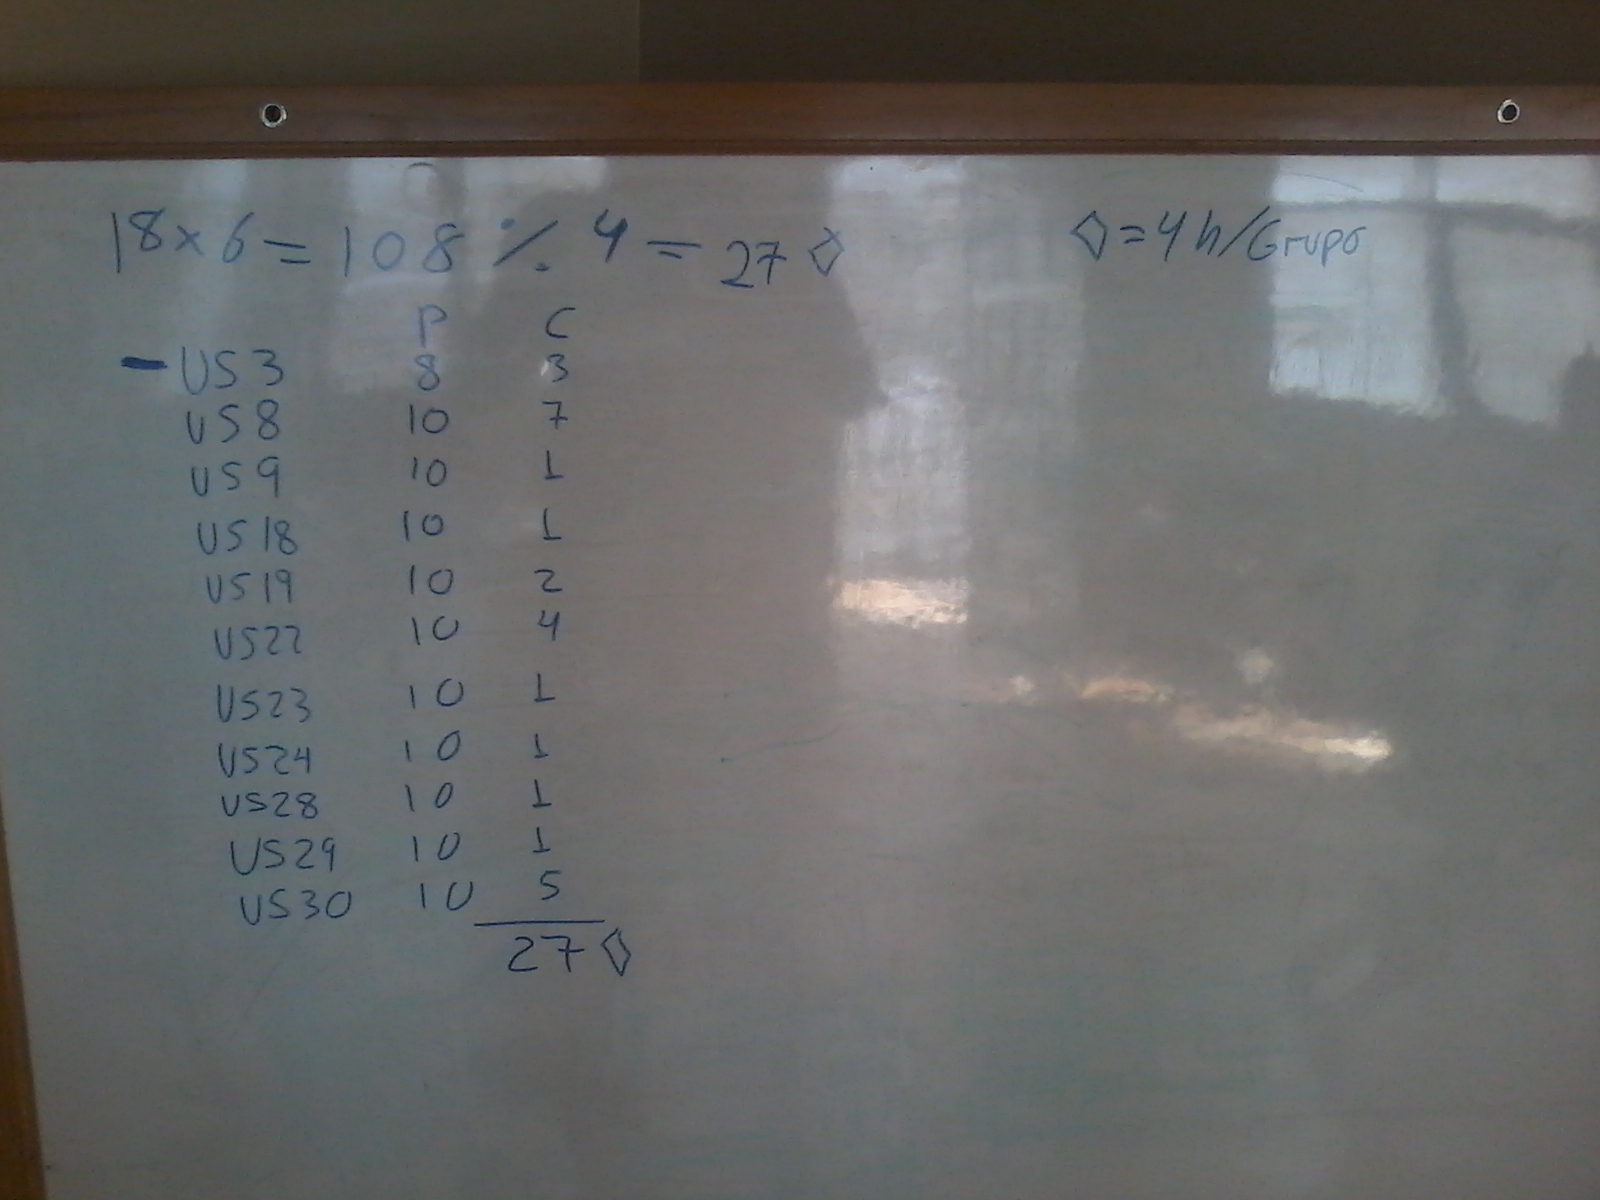 18 x 6 = 108 ٪ 4 = 27 ◊
◊ = 4 h/Grupo
P C
- US 3 8 3
US 8 10 7
US 9 10 1
US 18 10 1
US 19 10 2
US 22 10 4
US 23 10 1
US 24 10 1
US 28 10 1
US 29 10 1
US 30 10 5
27 ◊